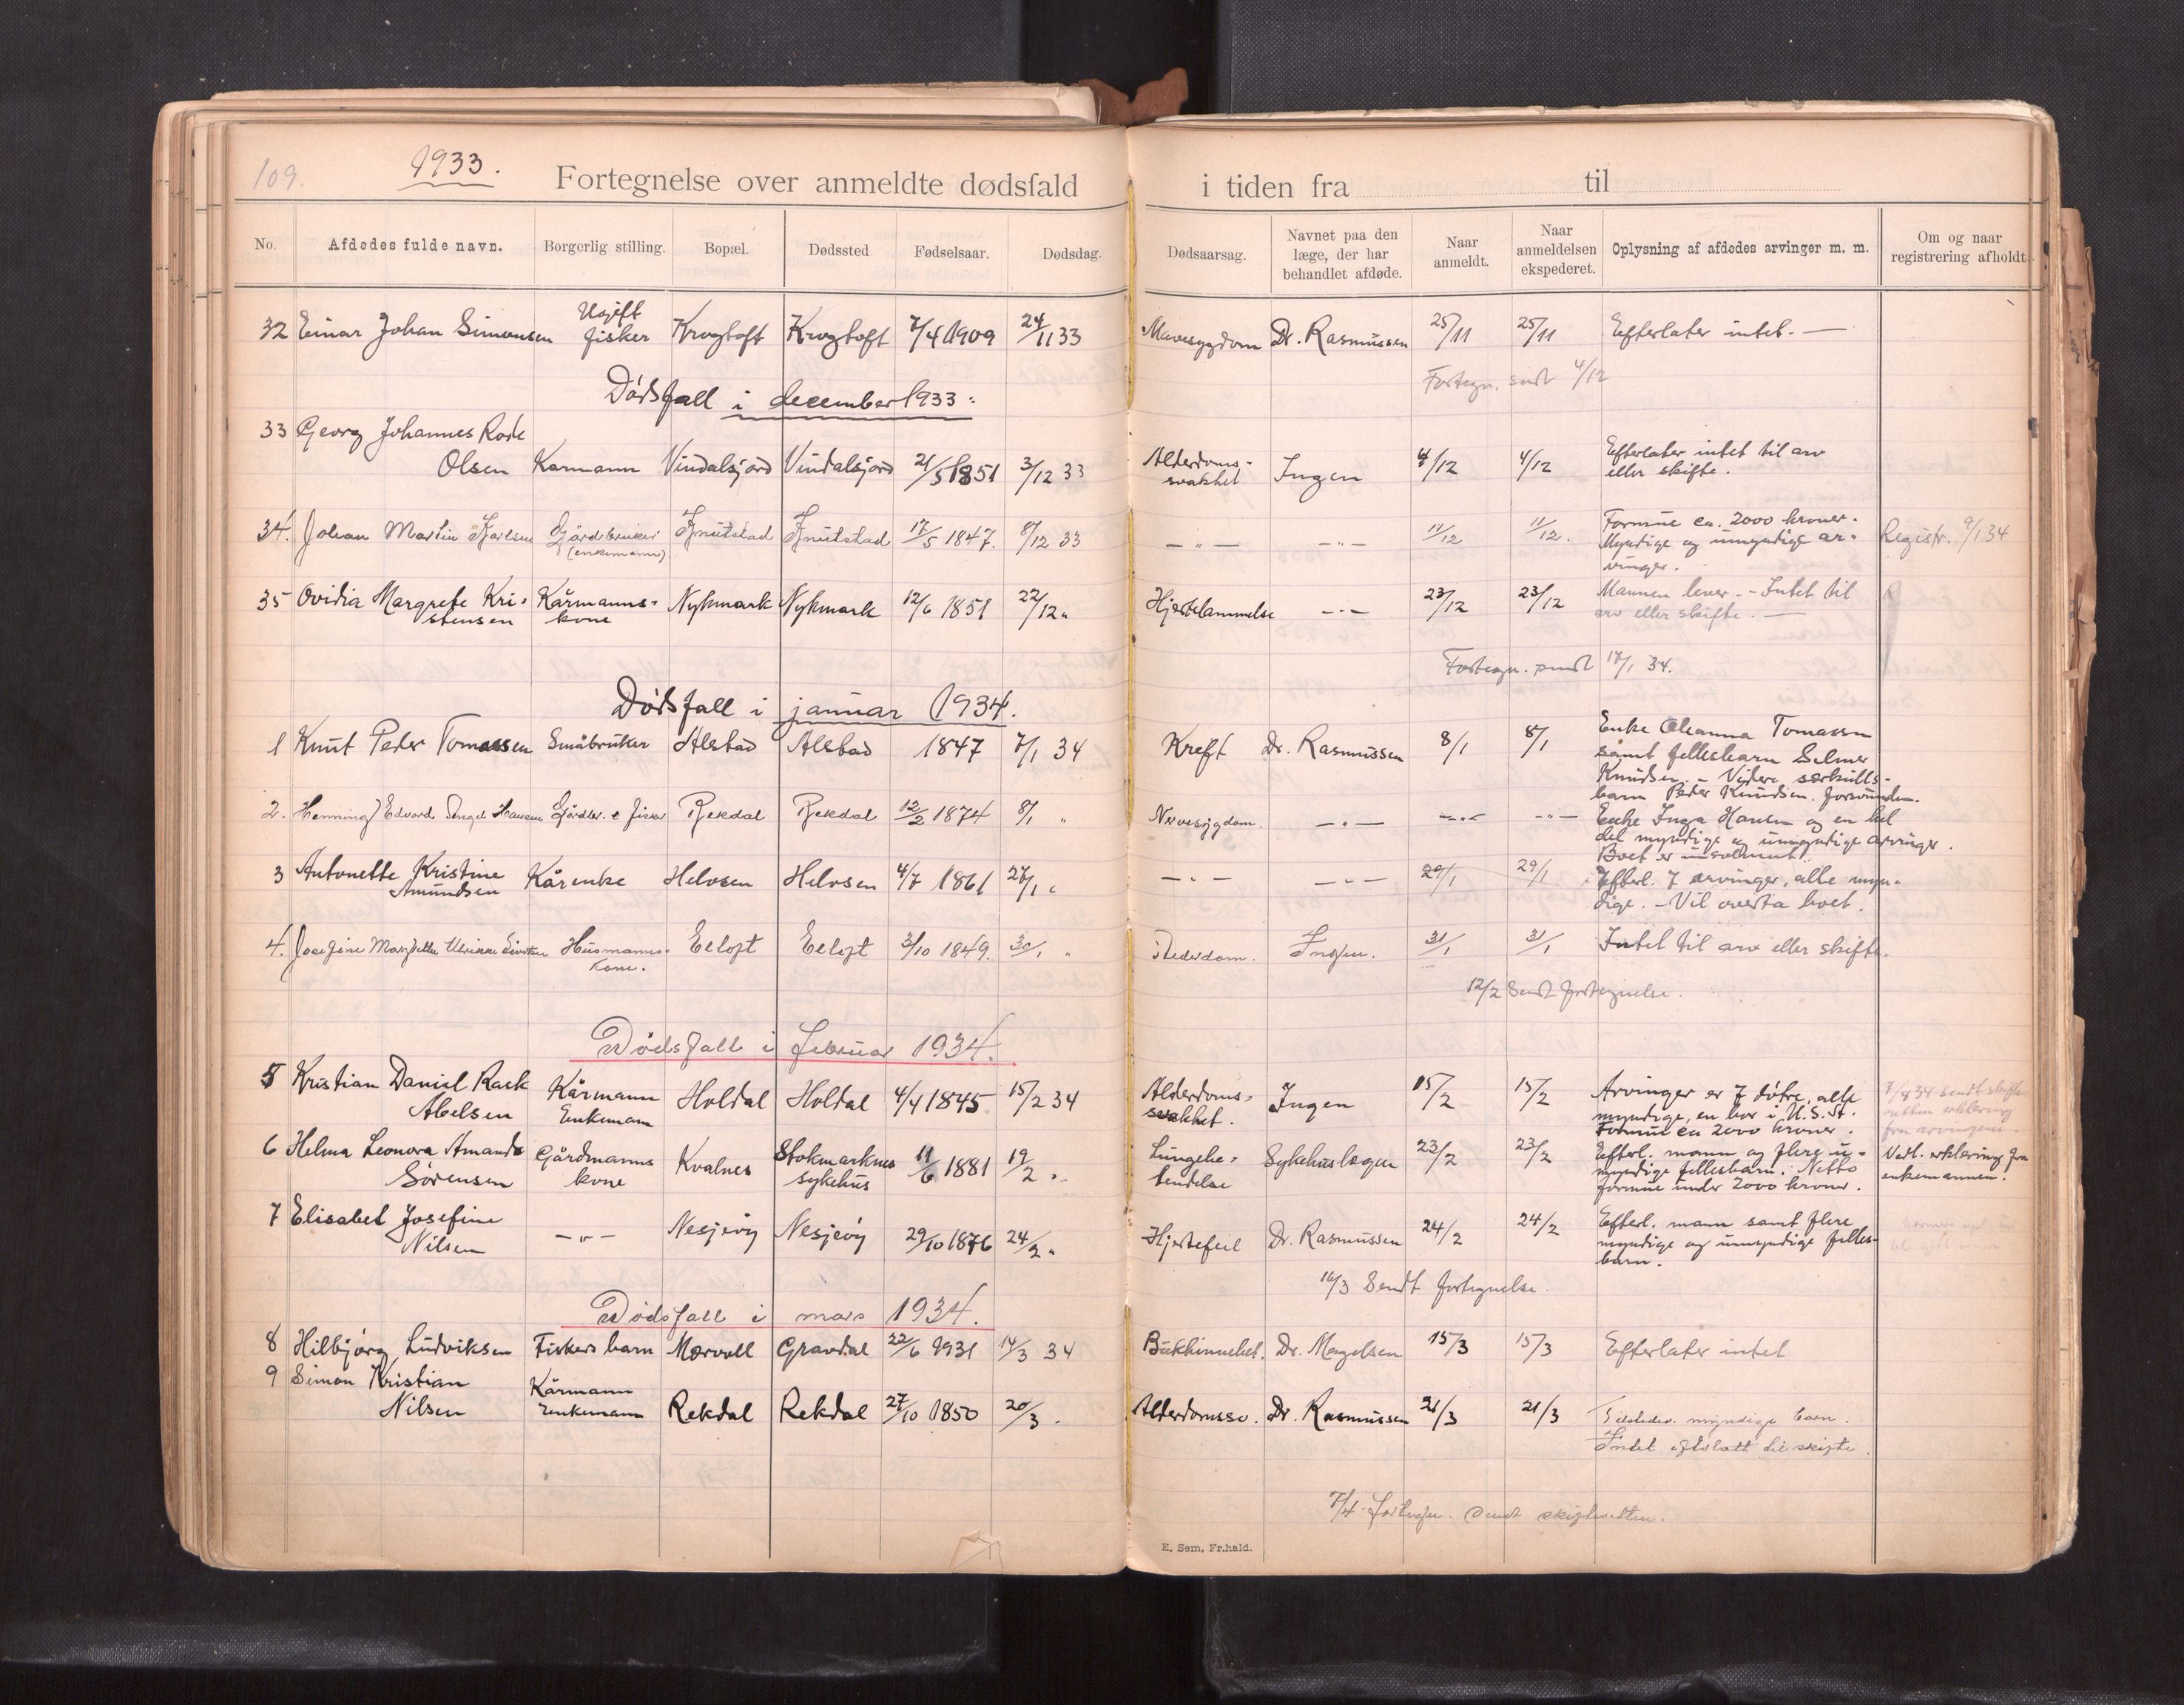 109.
1933.
Fortegnelse over anmeldte dødsfald i tiden fra til
No. Afdødes fulde navn. Borgerlig stilling. Bopæl. Dødssted Fødselsaar. Dødsdag. Dødsaarsag. Navnet paa den læge, der har behandlet afdøde. Naar anmeldt. Naar anmeldelsen ekspederet. Oplysning af afdødes arvinger m. m. Om og naar registrering afholdt.
32 Einar Johan Simonsen Ugift fisker Krogtoft Krogtoft 7/4 1909 24/11 33 Mavesygdom Dr. Rasmussen 25/11 25/11 Efterlater intet. —
Fortegn. sendt 4/12
Dødsfall i december 1933.
33 Georg Johannes Rode
Olsen Karmann Vindalsjord Vindalsjord 21/5 1851 3/12 33 Alderdoms- svakhet Ingen 4/12 4/12 Efterlater intet til arv
eller skifte.
34. Johan Martin Gårdbruker (enkemann) Knutstad Knutstad 17/5 1847. 8/12 33 — " — — " — 11/12 11/12. Formue ca. 2000 kroner.
Myndige og umyndige ar-
vinger.
Registr. 9/1 34
35 Ovidia Margrete Kri-
stensen Kårmanns- kone Nykmark Nykmark 12/6 1851 22/12 " Hjertelammelse — " — 23/12 23/12 Mannen lever. - Intet til
arv eller skifte. —
Fortegn. sendt 17/1 34.
Dødsfall i januar 1934.
1 Knut Peder Tomassen Småbruker Alstad Alstad 1847 7/1 34 Kreft Dr. Rasmussen 8/1 8/1 Enke Oleanna Tomassen
samt fellesbarn Selmer
Knudsen. - Videre særkulls-
barn Peder Knudsen. forsvunden.
2. Henning Edvard Hansen Gårdbr. & fisker Rekdal Rekdal 12/2 1874 8/1 " Nervesygdom. — " — — " — — " — Enke Inga Hansen og en hel
del myndige og umyndige arvinger.
Boet er insolvent.
3 Antonette Kristine
Amundsen Kårenke Helosen Helosen 4/7 1861 27/1 " — " — — " — 29/1 29/1 Efterl. 7 arvinger, alle myn-
dige. - Vil overta boet.
4. Josefine Ulrikke Husmanns- kone. Eltoft Eltoft 3/10 1849. 30/1 " Alderdom. Ingen. 31/1 31/1 Intet til arv eller skifte.
12/2 Sendt fortegnelse.
Dødsfall i februar 1934.
5 Kristian Daniel Rask
Abelsen Kårmann Enkemann Holdal Holdal 4/4 1845 15/2 34 Alderdoms- svakhet. Ingen 15/2 15/2 Arvinger er 7 døtre, alle
myndige, en bor i U.S.A.
Formue ca 2000 kroner.
34 sendt skifte-
retten erklæring
fra arvingene.
6 Helma Leonora Amanda
Sørensen Gårdmanns kone Kvalnes Stokmarknes sykehus 11/6 1881 19/2 " Lungebe- tendelse Sykehuslægen 23/2 23/2 Efterl. mann og flere u-
myndige fellesbarn. Netto
formue under 2000 kroner.
Vedl. erklæring fra
enkemannen.
7 Elisabet Josefine
Nilsen — " — Nesjeøy Nesjeøy 29/10 1876 24/2 " Hjertefeil Dr. Rasmussen 24/2 24/2 Efterl. mann samt flere
myndige og umyndige felles-
barn.
16/3 Sendt fortegnelse.
Dødsfall i mars 1934.
8 Hilbjørg Ludviksen Fiskers barn Mærvoll Gravdal 22/6 1931 14/3 34 Bukhinnebet. Dr. Magelsen 15/3 15/3 Efterlater intet
9 Simon Kristian
Nilsen Kårmann Enkemann Rekdal Rekdal 27/10 1850 20/3 . Alderdomssv. Dr. Rasmussen 21/3 21/3 myndige barn.
Intet efterlatt til skifte.
7/4 fortegn. sendt skifteretten.
E. Sem, Fr.hald.